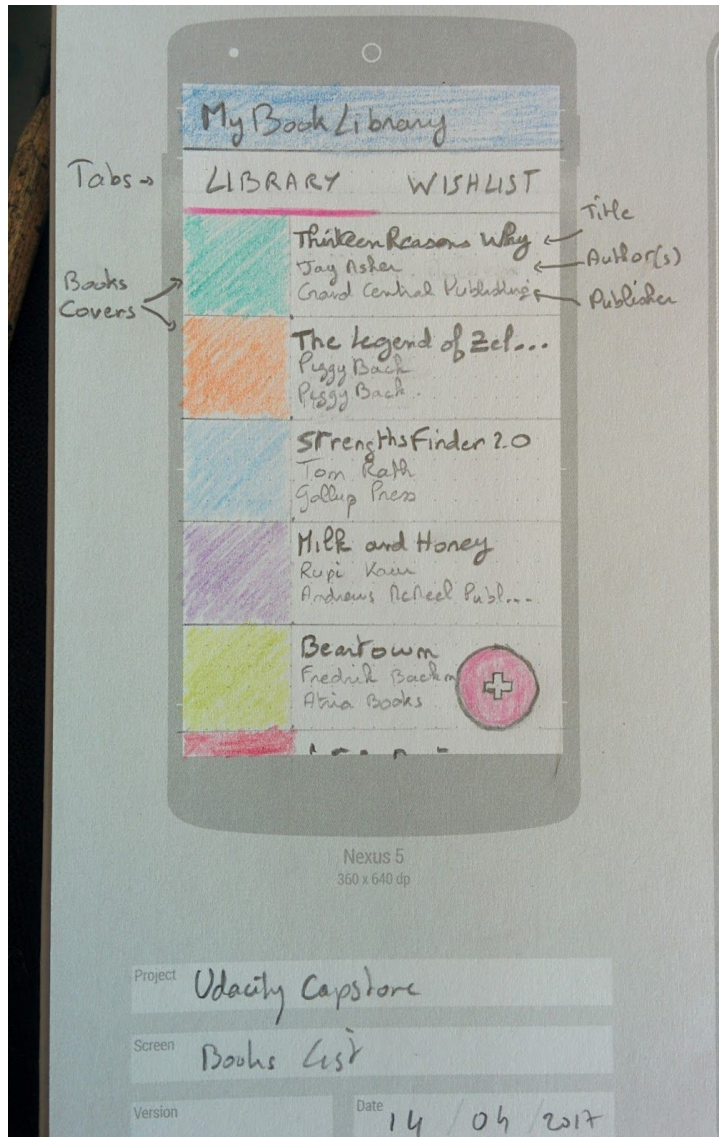 My Book Library
Tabs
LIBRARY
WISHLIST
Books
Covers
Thirteen Reasons Why
Jay Asher
Grand Central Publishing
Title
Author(s)
Publisher
The Legend of Zel...
Piggy Back
Piggy Back
StrengthsFinder 2.0
Tom Rath
Gallup Press
Milk and Honey
Rupi Kaur
Andrews McMeel Publ...
Beartown
Fredrik Backm
Atria Books
Nexus 5
360 x 640 dp
Project Udacity Capstone
Screen Books List
Version
Date 14 / 04 / 2017